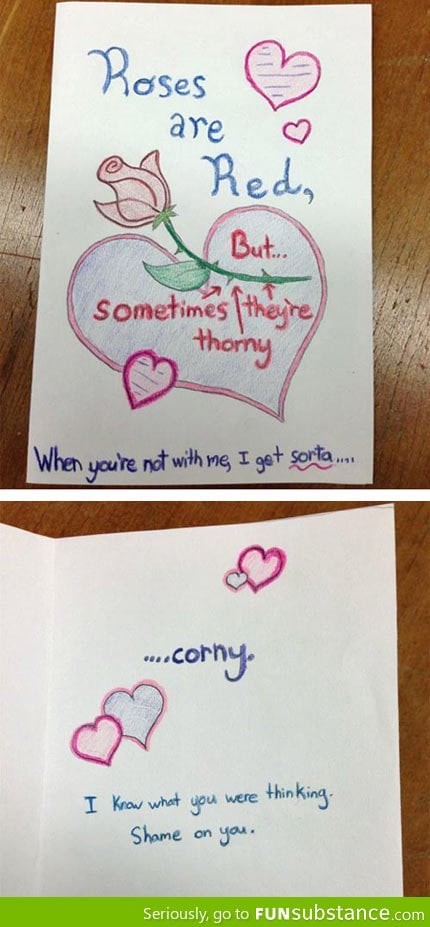 Roses
are
Red,
But...
sometimes they're
thorny
When you're not with me, I get sorta....
....corny.
I know what you were thinking.
Shame on you.
Seriously, go to FUNsubstance.com